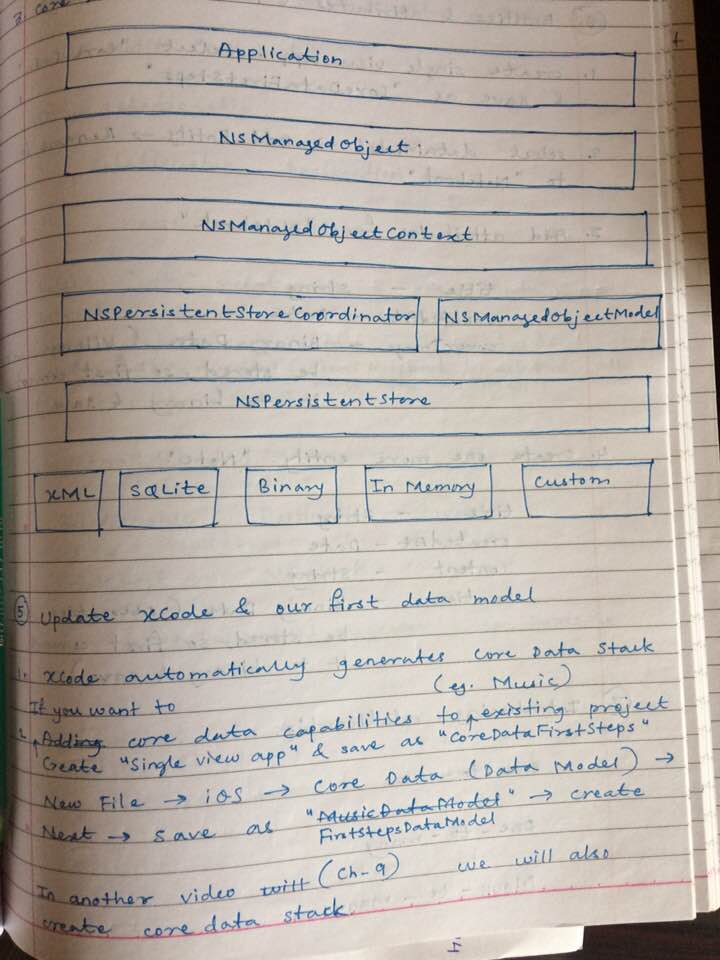 3. Core
Application
NSManagedObject
NSManagedObjectContext
NSPersistentStoreCoordinator NSManagedObjectModel
NSPersistentStore
XML SQLite Binary In Memory Custom
⑤ Update XCode & our first data model
1. XCode automatically generates Core Data Stack
If you want to (eg. Music)
2. Adding core data capabilities to existing project
Create "Single view app" & save as "CoreDataFirstSteps"
New File → iOS → Core Data (Data Model) →
Next → Save as "MusicDataModel" → create
FirstStepsDataModel
In another video will (Ch-9) we will also
create core data stack.